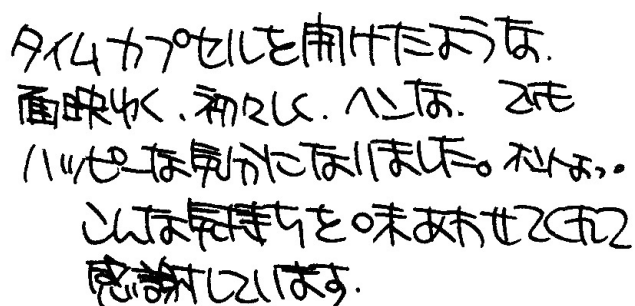 タイムカプセルを開けたような.
面映ゆく、初々しく、ヘンな. でも
ハッピーな気分になりました。ホントよっ。
こんな気持ちを味あわせてくれて
感謝しています.